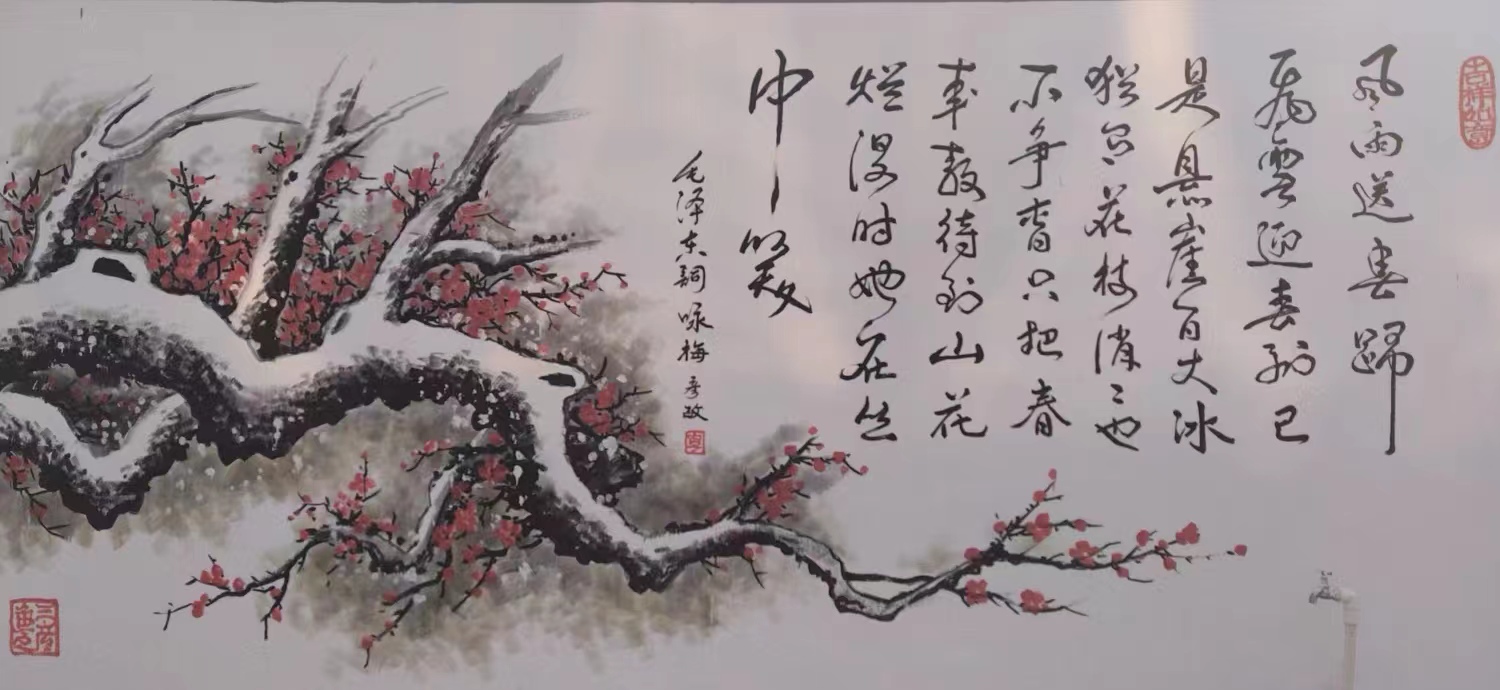 吉祥如意
风雨送春歸
飛雪迎春到已
是悬崖百丈冰
犹有花枝俏〻也
不争春只把春
来报待到山花
烂漫时她在丛
中笑
毛泽东詞咏梅